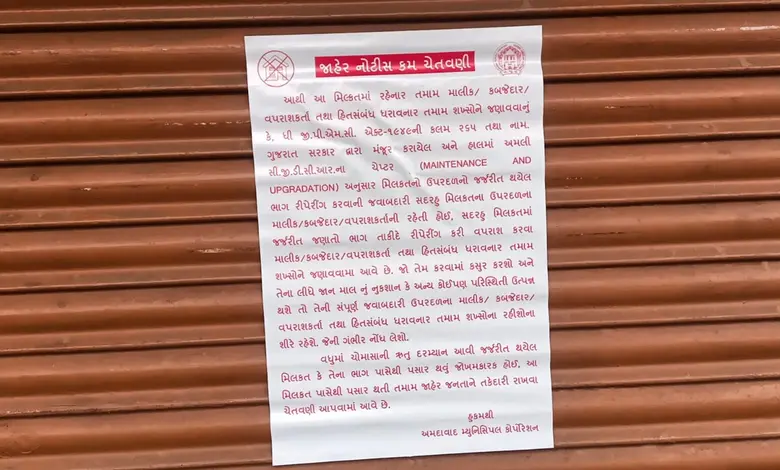 જાહેર નોટીસ કમ ચેતવણી
આથી આ મિલ્કતમાં રહેનાર તમામ માલીક/ કબજેદાર/
વપરાશકર્તા તથા હિતસંબંધ ધરાવનાર તમામ શખ્સોને જણાવવાનું
કે, ધી જી.પી.એમ.સી. એક્ટ-૧૯૪૯ની કલમ ૨૬૫ તથા નામ.
ગુજરાત સરકાર દ્વારા મંજૂર કરાયેલ અને હાલમાં અમલી
સી.જી.ડી.સી.આર.ના ચેપ્ટર (MAINTENANCE AND
UPGRADATION) અનુસાર મિલકતનો ઉપરદળનો જર્જરીત થયેલ
ભાગ રીપેરીંગ કરવાની જવાબદારી સદરહુ મિલકતના ઉપરદળના
માલીક/કબજેદાર/વપરાશકર્તાની રહેતી હોઈ, સદરહુ મિલકતમાં
જર્જરીત જણાતો ભાગ તાકીદે રીપેરીંગ કરી વપરાશ કરવા
માલીક/કબજેદાર/વપરાશકર્તા તથા હિતસંબંધ ધરાવનાર તમામ
શખ્સોને જણાવવામા આવે છે. જો તેમ કરવામાં કસુર કરશો અને
તેના લીધે જાન માલ નું નુકશાન કે અન્ય કોઈપણ પરિસ્થિતી ઉત્પન્ન
થશે તો તેની સંપૂર્ણ જવાબદારી ઉપરદળના માલીક/ કબજેદાર/
વપરાશકર્તા તથા હિતસંબંધ ધરાવનાર તમામ શખ્સોના રહીશોના
શીરે રહેશે. જેની ગંભીર નોંધ લેશો.
વધુમાં ચોમાસાની ઋતુ દરમ્યાન આવી જર્જરીત થયેલ
મિલકત કે તેના ભાગ પાસેથી પસાર થવું જોખમકારક હોઈ, આ
મિલકત પાસેથી પસાર થતી તમામ જાહેર જનતાને તકેદારી રાખવા
ચેતવણી આપવામાં આવે છે.
હુકમથી
અમદાવાદ મ્યુનિસિપલ કોર્પોરેશન